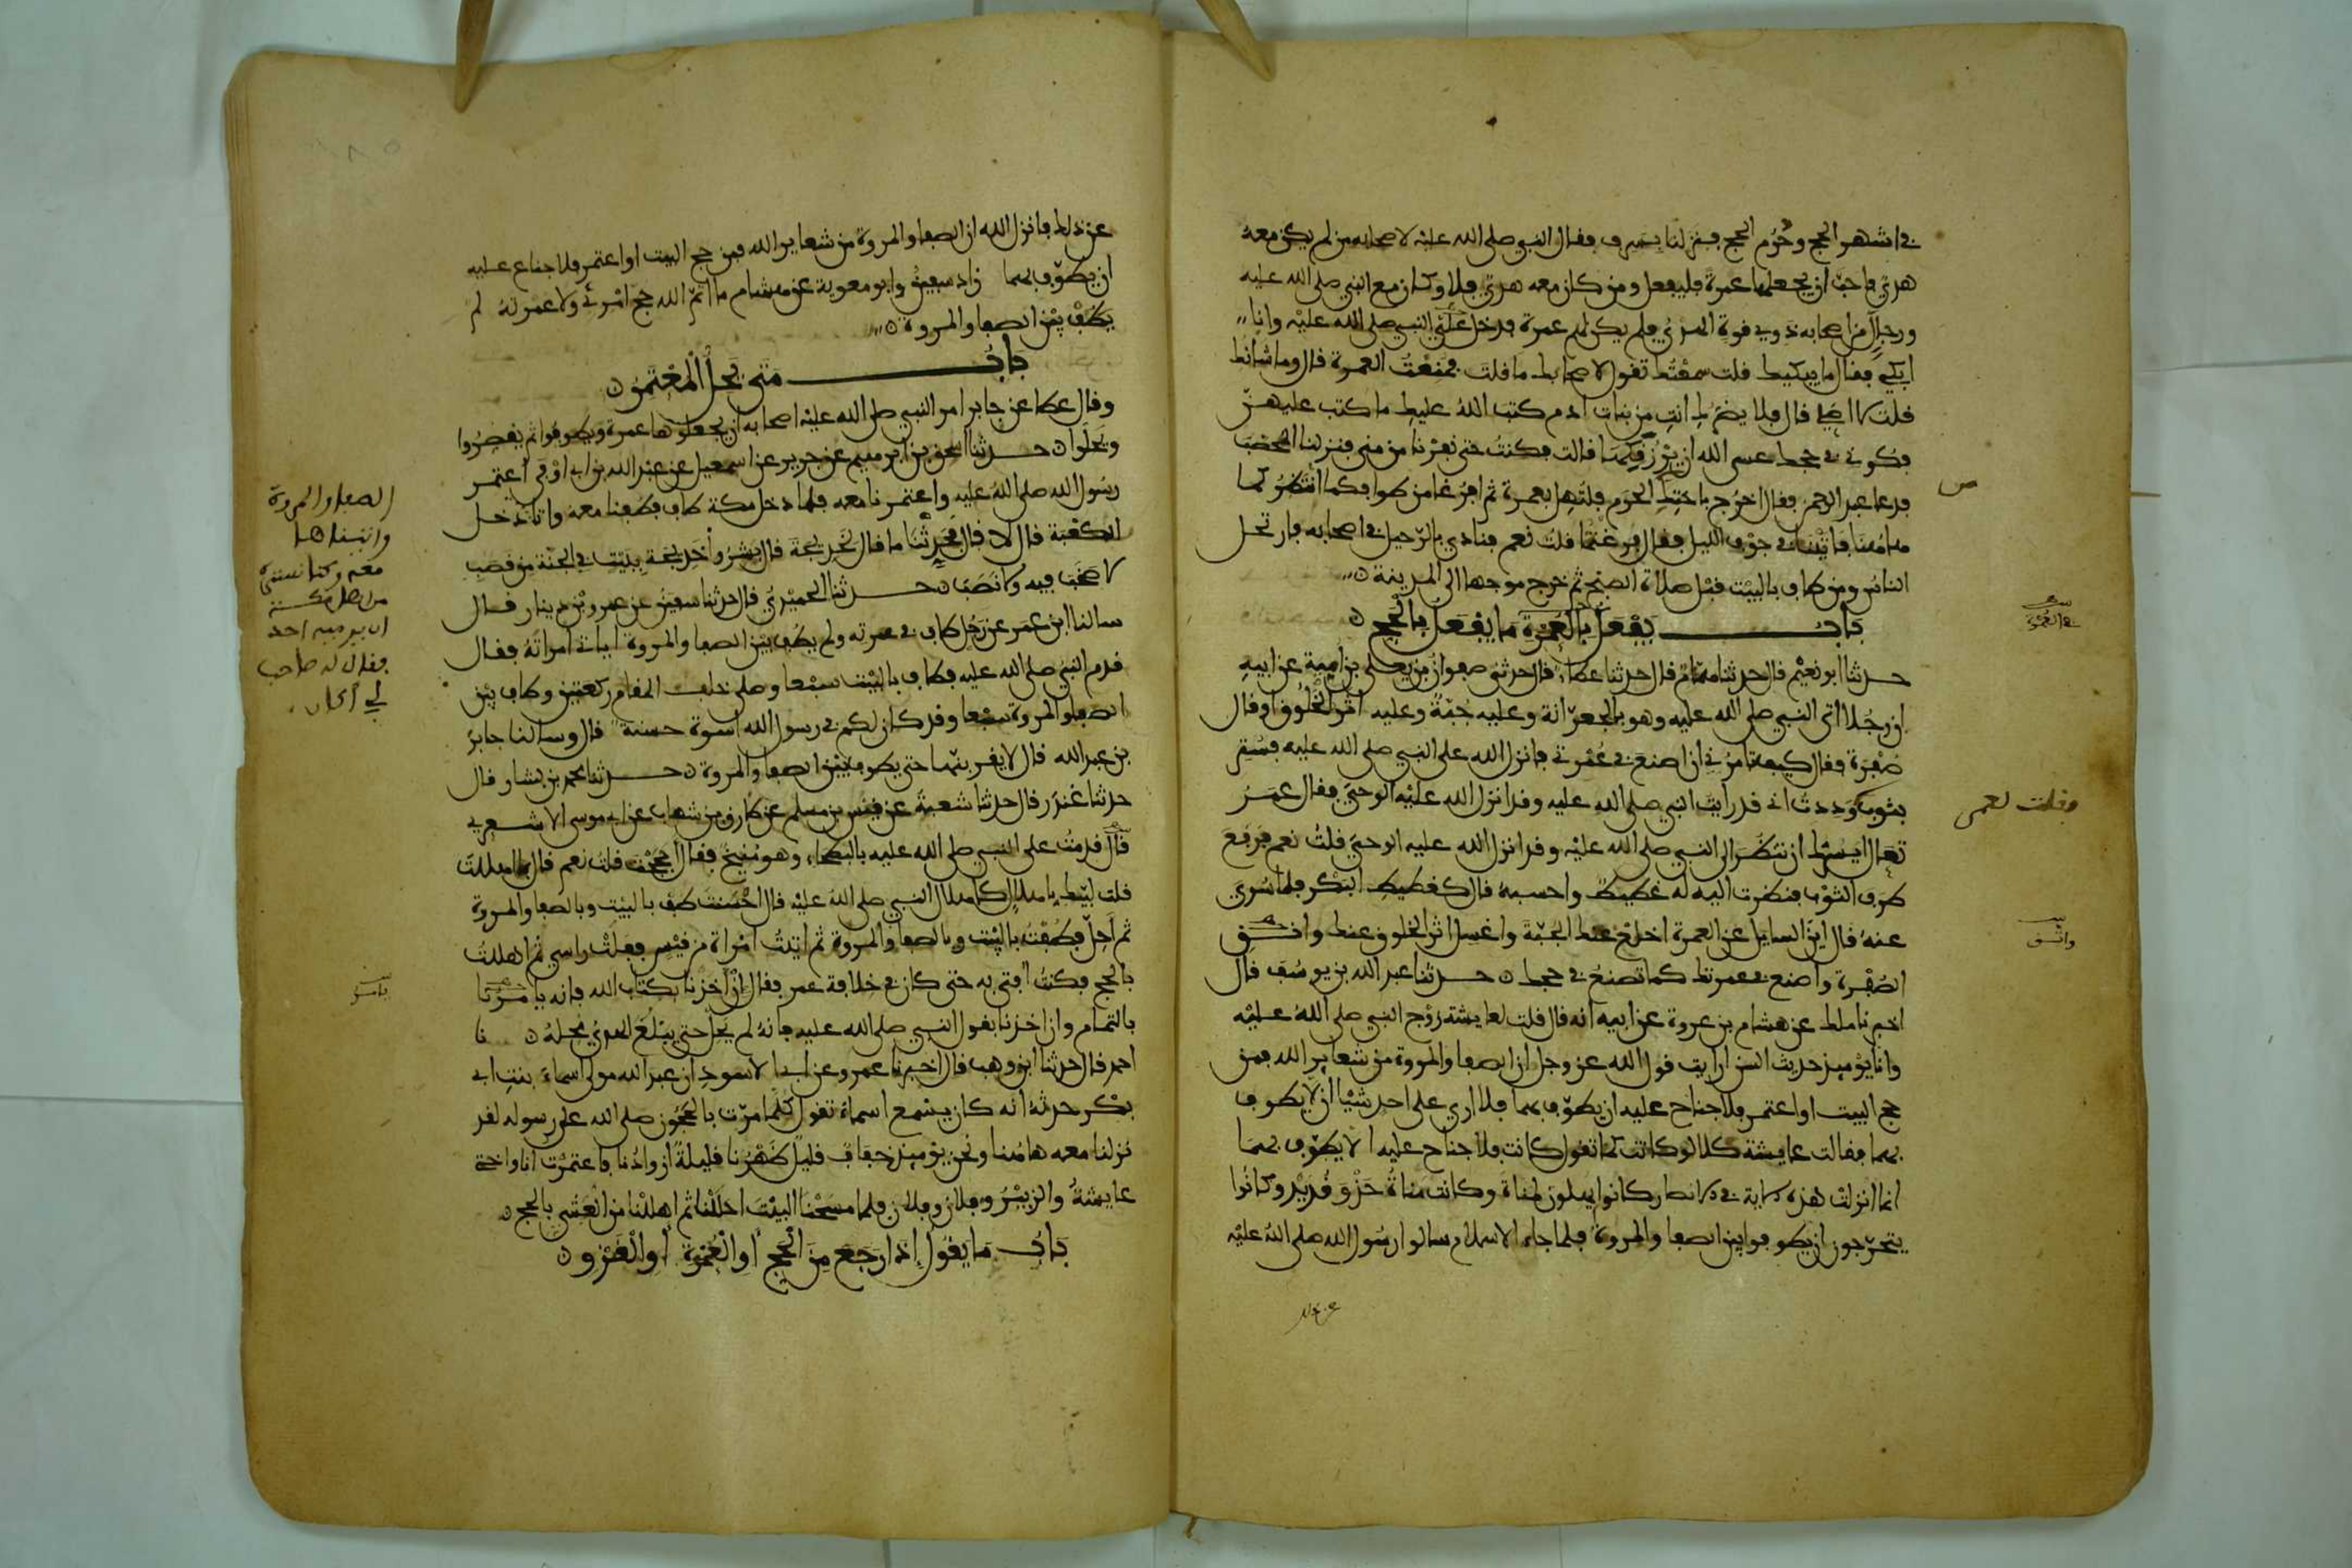 في اشهر الحج وحرم الحج فنزلنا بسرف فقال النبي صلى الله عليه لاصحابه من لم يكن معه
هدي فاحب ان يجعلها عمرة فليفعل ومن كان معه هدي فلا وكان مع النبي صلى الله عليه
ورجال من اصحابه ذوي قوة الهدي فلم يكن لهم عمرة فدخل علي النبي صلى الله عليه وانا
ابكي فقال ما يبكيك قلت سمعتك تقول لاصحابك ما قلت فمنعت العمرة قال وما شانك
قلت لا اصلي قال فلا يضرك انت من بنات ادم كتب الله عليك ما كتب عليهن
فكوني في حجك عسى الله ان يرزقكها قالت فكنت حتى نفرنا من منى فنزلنا المحصب
فدعا عبد الرحمن فقال اخرج باختك الحرم فلتهل بعمرة ثم افرغا من طوافكما انتظركما
هاهنا فاتينا في جوف الليل فقال فرغتما قلت نعم فنادى بالرحيل في اصحابه فارتحل
الناس ومن طاف بالبيت قبل صلاة الصبح ثم خرج موجها الى المدينة
باب يفعل بالعمرة ما يفعل بالحج
في العمرة
حدثنا ابو نعيم قال حدثنا همام قال حدثنا عطاء قال حدثني صفوان بن يعلى بن امية عن ابيه
ان رجلا اتى النبي صلى الله عليه وهو بالجعرانة وعليه جبة وعليه اثر الخلوق او قال
صفرة فقال كيف تامرني ان اصنع في عمرتي فانزل الله على النبي صلى الله عليه فستر
بثوب ووددت اني قد رايت النبي صلى الله عليه وقد انزل الله عليه الوحي فقال عمر
فقلت لعمر
تعال ايسرك ان تنظر الى النبي صلى الله عليه وقد انزل الله عليه الوحي قلت نعم فرفع
طرف الثوب فنظرت اليه له غطيط واحسبه قال كغطيط البكر فلما سري
عنه قال اين السايل عن العمرة اخلع عنك الجبة واغسل اثر الخلوق عنك وانق
واتق
الصفرة واصنع في عمرتك كما تصنع في حجك حدثنا عبد الله بن يوسف قال
اخبرنا ملك عن هشام بن عروة عن ابيه انه قال قلت لعايشة زوج النبي صلى الله عليه
وانا يوميذ حديث السن ارايت قول الله عز وجل ان الصفا والمروة من شعاير الله فمن
حج البيت او اعتمر فلا جناح عليه ان يطوف بهما فلا ارى على احد شيا ان لا يطوف
بهما فقالت عايشة كلا لو كانت كما تقول كانت فلا جناح عليه الا يطوف بهما
انما انزلت هذه الاية في الانصار كانوا يهلون لمناة وكانت مناة حذو قديد وكانوا
يتحرجون ان يطوفوا بين الصفا والمروة فلما جاء الاسلام سالوا رسول الله صلى الله عليه
عن ذلك
عن ذلك فانزل الله ان الصفا والمروة من شعاير الله فمن حج البيت او اعتمر فلا جناح عليه
ان يطوف بهما زاد سفين وابو معوية عن هشام ما اتم الله حج امرئ ولا عمرته لم
يطف بين الصفا والمروة
باب متى يحل المعتمر
وقال عطا عن جابر امر النبي صلى الله عليه اصحابه ان يجعلوها عمرة ويطوفوا ثم يقصروا
ويحلوا حدثنا اسحق بن ابرهيم عن جرير عن اسمعيل عن عبد الله بن ابي اوفى اعتمر
رسول الله صلى الله عليه واعتمرنا معه فلما دخل مكة طاف وطفنا معه واتا
الصفا والمروة
واتيناها
معه وكنا نستره
من اهل مكة
ان يرميه احد
فقال له صاحب
لي اكان
دخل
الكعبة قال لا قال فحدثنا ما قال لخديجة قال بشروا خديجة ببيت في الجنة من قصب
لا صخب فيه ولا نصب حدثنا الحميدي قال حدثنا سفين عن عمرو بن دينار قال
سالنا ابن عمر عن رجل طاف في عمرته ولم يطف بين الصفا والمروة اياتي امراته فقال
قدم النبي صلى الله عليه فطاف بالبيت سبعا وصلى خلف المقام ركعتين وطاف بين
الصفا والمروة سبعا وقد كان لكم في رسول الله اسوة حسنة قال وسالنا جابر
بن عبد الله قال لا يقربنها حتى يطوف بين الصفا والمروة حدثنا محمد بن بشار قال
حدثنا غندر قال حدثنا شعبة عن قيس بن مسلم عن طارق بن شهاب عن ابي موسى الاشعري
قال قدمت على النبي صلى الله عليه بالبطحاء وهو منيخ فقال احججت قلت نعم قال بما اهللت
قلت لبيك باهلال كاهلال النبي صلى الله عليه قال احسنت طف بالبيت وبالصفا والمروة
ثم احل فطفت بالبيت وبالصفا والمروة ثم اتيت امراة من قيس ففلت راسي ثم اهللت
بالحج فكنت افتي به حتى كان في خلافة عمر فقال ان اخذنا بكتاب الله فانه يامرنا
يامر
بالتمام وان اخذنا بقول النبي صلى الله عليه فانه لم يحل حتى يبلغ الهدي محله نا
احمد قال حدثنا ابن وهب قال اخبرنا عمرو عن ابي الاسود ان عبد الله مولى اسماء بنت ابي
بكر حدثه انه كان يسمع اسماء تقول كلما مرت بالحجون صلى الله على رسوله لقد
نزلنا معه هاهنا ونحن يوميذ خفاف قليل ظهرنا قليلة ازوادنا فاعتمرت انا واختي
عايشة والزبير وفلان وفلان فلما مسحنا البيت احللنا ثم اهللنا من العشي بالحج
باب ما يقول اذا رجع من الحج او العمرة او الغزو